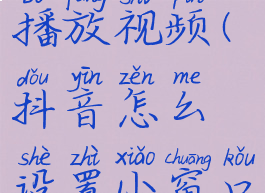 播放视频(
dǒu yīn zěn me
抖音怎么
shè zhì xiǎo chuāng kǒu
设置小窗口